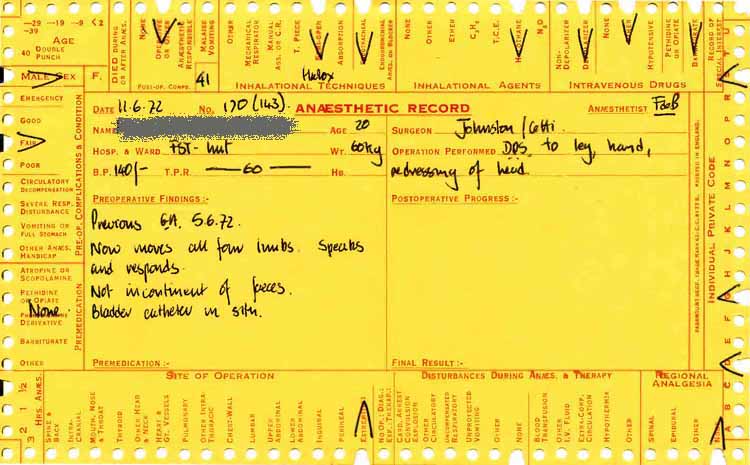 —29 —19 —9 < 2
—39
AGE
40 DOUBLE PUNCH
MALE SEX F.
DIED DURING OR AFTER ANÆS.
NONE
OPERATIVE
ANÆSTHETIC RESPONSIBLE
MALAISE VOMITING
OTHER
POST-OP. COMPS. 41
MECHANICAL RESPIRATOR
MANUAL ASS. OR C.R.
T. PIECE
ABSORPTION
ENDOTRACHEAL
ENDOBRONCHIAL ANÆS. OR BLOCKER
Halox
INHALATIONAL TECHNIQUES
NONE
OTHER
ETHER
C₃H₆
T.C.E.
HALOTHANE
N₂O
INHALATIONAL AGENTS
NON-DEPOLARIZER
DEPOLARIZER
NONE
OTHER
HYPOTENSIVE
PETHIDINE OR OPIATE
BARBITURATE
INTRAVENOUS DRUGS
RECORD OF SPECIAL INTEREST
DATE 11.6.72 No. 170 (143). ANÆSTHETIC RECORD ANÆSTHETIST
NAME AGE 20 SURGEON Johnston / Cotti.
HOSP. & WARD FST- hut WT. 60 Kg OPERATION PERFORMED DPS to leg, hand,
B.P. 140/- T.P.R. — 60 — HB. redressing of head.
PREOPERATIVE FINDINGS :- POSTOPERATIVE PROGRESS :-
Previous GA. 5.6.72.
Now moves all four limbs. Speaks
and responds.
Not incontinent of faeces.
Bladder catheter in situ.
PREMEDICATION :- FINAL RESULT :-
PRE-OP. COMPLICATIONS & CONDITION
EMERGENCY
GOOD
FAIR
POOR
CIRCULATORY DECOMPENSATION
SEVERE RESP. DISTURBANCE
VOMITING OR FULL STOMACH
OTHER ANÆS. HANDICAP
PREMEDICATION
ATROPINE OR SCOPOLAMINE
PETHIDINE OR OPIATE
None.
DERIVATIVE
BARBITURATE
OTHER
INDIVIDUAL PRIVATE CODE
A B C D E F G H J K L M N O P
HRS. ANÆS.
3 2 1 ½
SITE OF OPERATION
SPINE & BACK
INTRA-CRANIAL
MOUTH, NOSE & THROAT
THYROID
OTHER HEAD & NECK
HEART & G. VESSELS
PULMONARY
OTHER INTRA-THORACIC
CHEST-WALL
LUMBAR
UPPER ABDOMINAL
LOWER ABDOMINAL
INGUINAL
PERINEAL
NO OP.: DIAG.: EXP.: THERAP.:
DISTURBANCES DURING ANÆS. & THERAPY
CARD. ARREST CONVULSION EXPLOSION
OTHER CIRCULATORY
UNCOMPENSATED RESPIRATORY
UNPROTECTED VOMITING
OTHER
NONE
BLOOD TRANSFUSION
OTHER I.V. FLUID
EXTRA-CORP. CIRCULATION
HYPOTHERMIA
OTHER
REGIONAL ANALGESIA
SPINAL
EPIDURAL
OTHER